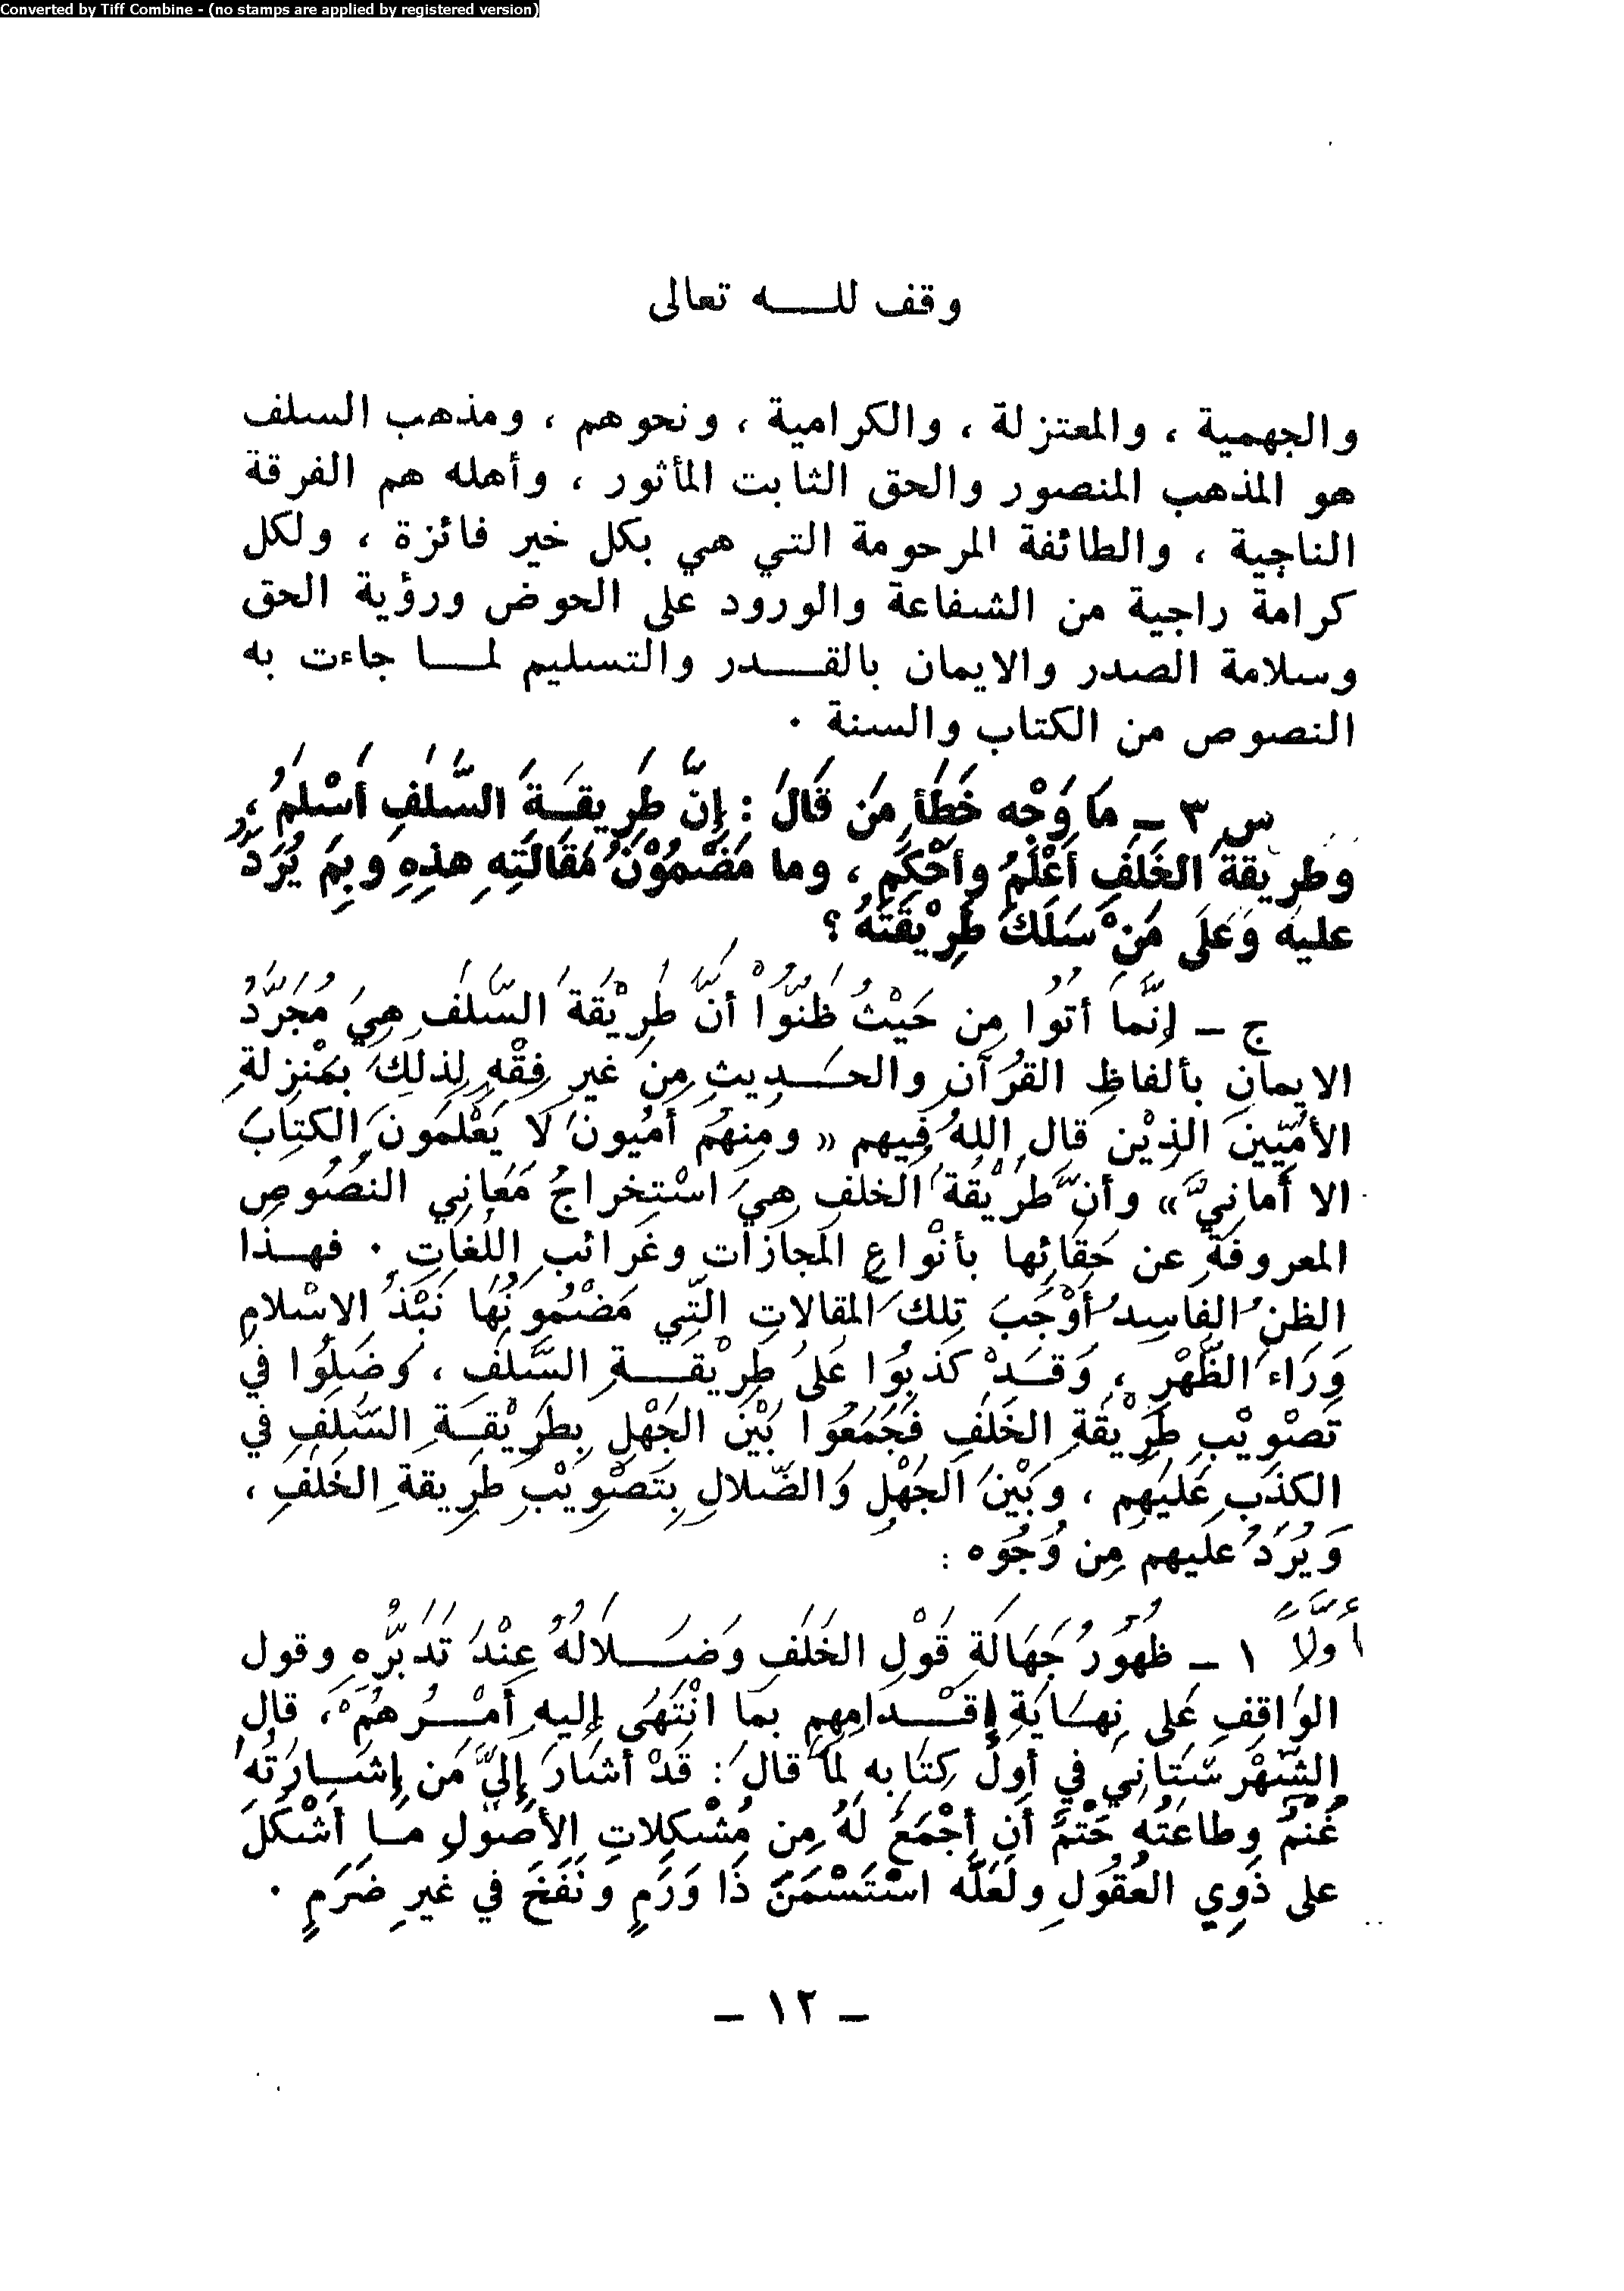 Converted by Tiff Combine - (no stamps are applied by registered version)
وقف للـــه تعالى
والجهمية ، والمعتزلة ، والكرامية ، ونحوهم ، ومذهب السلف
هو المذهب المنصور والحق الثابت المأثور ، وأهله هم الفرقة
الناجية ، والطائفة المرحومة التي هي بكل خير فائزة ، ولكل
كرامة راجية من الشفاعة والورود على الحوض ورؤية الحق
وسلامة الصدر والايمان بالقـــدر والتسليم لمـــا جاءت به
النصوص من الكتاب والسنة .
س ٣ ـ مَا وَجْه خَطَأِ مَن قَالَ : إِنَّ طَرِيقَـةَ السَّلَفِ أَسْلَمُ ،
وَطرِيقةَ الخَلَفِ أَعْلَمُ وأَحْكَم ، وما مَضْمُوْنُ مَقَالَتِهِ هذِهِ وبِمَ يُرَدُّ
عليه وَعَلَى مَنْ سَلَكَ طَرِيْقَتَهُ ؟
ج ـ إنَّمَا أتُوا مِن حَيْثُ ظَنُّوْا أنَّ طَرِيْقَةَ السَّلَفِ هِيَ مُجَرَّدُ
الايمانِ بألفاظِ القُرآنِ والحَـــدِيثِ مِنْ غَيرِ فِقْهٍ لِذلِكَ بِمَنْزِلةِ
الأُمِّيِّينَ الذِيْن قال اللهُ فِيهم « ومِنهُم أُمِّيونَ لَا يَعْلَمونَ الكتابَ
الا أمَانِيَّ » وأنَّ طَرِيْقَةَ الخَلفِ هِيَ اسْتِخراجُ مَعَانِي النصُوصِ
المعروفةِ عن حَقَائِها بأنْواعِ المَجازات وغَرائبِ اللُّغاتِ . فهـــذا
الظنُّ الفاسِدُ أوْجَبَ تِلكَ المقالاتِ التِي مَضْمُونُهَا نَبْذُ الاسْلامِ
وَرَاءَ الظَّهْرِ ، وَقَـــدْ كَذَبُوا عَلىَ طَرِيْقَـــةِ السَّلَفِ ، وضَلُّوا فيْ
تَصْوِيْبِ طَرِيْقَةِ الخَلَفِ فَجَمَعُوا بَيْنَ الجَهْلِ بِطَرِيْقَـةِ السَّلَفِ في
الكذِبِ عَلَيهم ، وَبَيْنَ الجَهْلِ وَالضَّلالِ بِتَصْوِيْبِ طَرِيقةِ الخَلَفِ ،
وَيُرَدُ عليهم مِن وُجُوه :
أَوَّلاً ١ ـ ظهُورُ جَهَالَةِ قَوْلِ الخَلَفِ وَضَـــلالهُ عِنْدَ تَدَبُّرِهِ وقول
الوَاقِفِ عَلى نِهـَايَةِ إقْـــدامِهِم بمَا انْتَهَى إليهِ أَمْـــرُهُمْ ، قال
الشَهْرِسْتَانِي في أولِ كتابه لَمَّا قَالَ : قَدْ أشَارَ إليَّ مَن إشَـــارَتُهُ
غُنْمٌ وطاعَتُه حَتْمٌ أن أجْمَعَ لَهُ مِن مُشْكِلاتِ الأُصُولِ مـا أشْكَلَ
على ذَوِي العُقُولِ ولَعَلَّه اسْتَسْمَنَ ذَا وَرَمٍ ونَفَخَ في غَيرِ ضَرَمٍ .
ـ ١٢ ـ